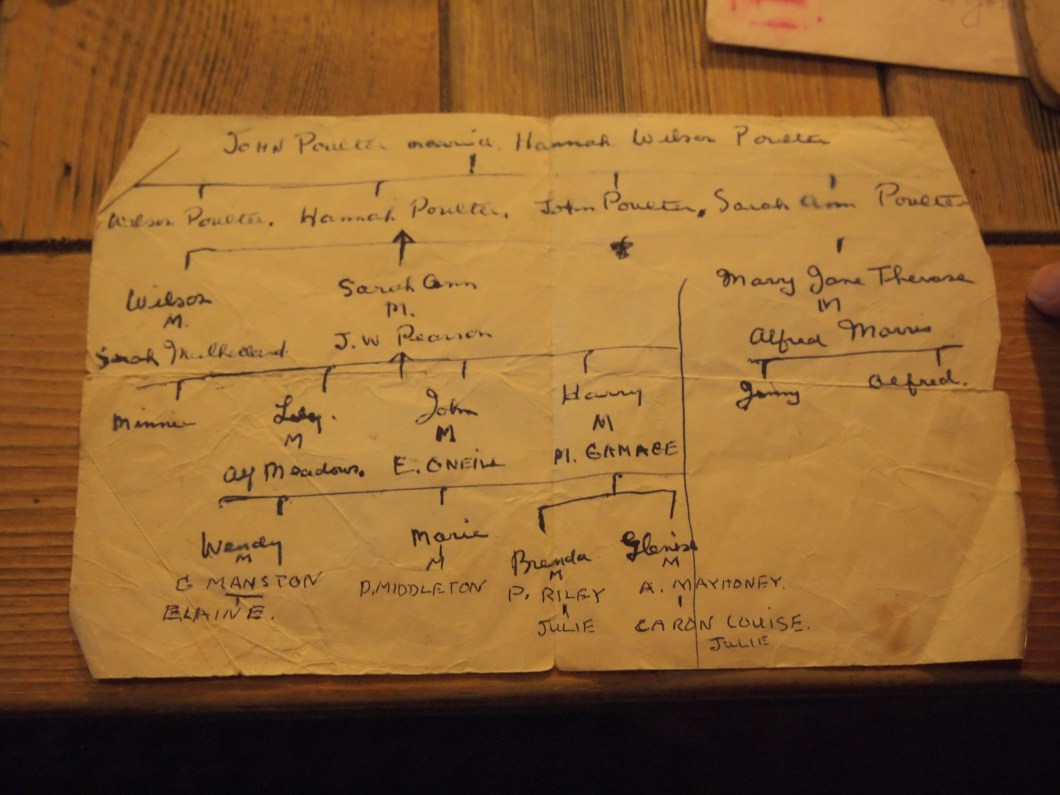 JOHN Poulter married Hannah Wilson Poulter
Wilson Poulter. Hannah Poulter. John Poulter, Sarah Ann Poulter
Wilson Sarah Ann Mary Jane Therase
M. M. M
Sarah J.W Pearson Alfred Morris
Minnie Lily. John Harry Jinny Alfred.
M M M
Meadows. E. ONEILL M. GAMAGE
Wendy Marie Brenda Glenise
M M M M
G MANSTON D. MIDDLETON P. RILEY A. MAYHONEY.
ELAINE. JULIE CARON LOUISE.
JULIE